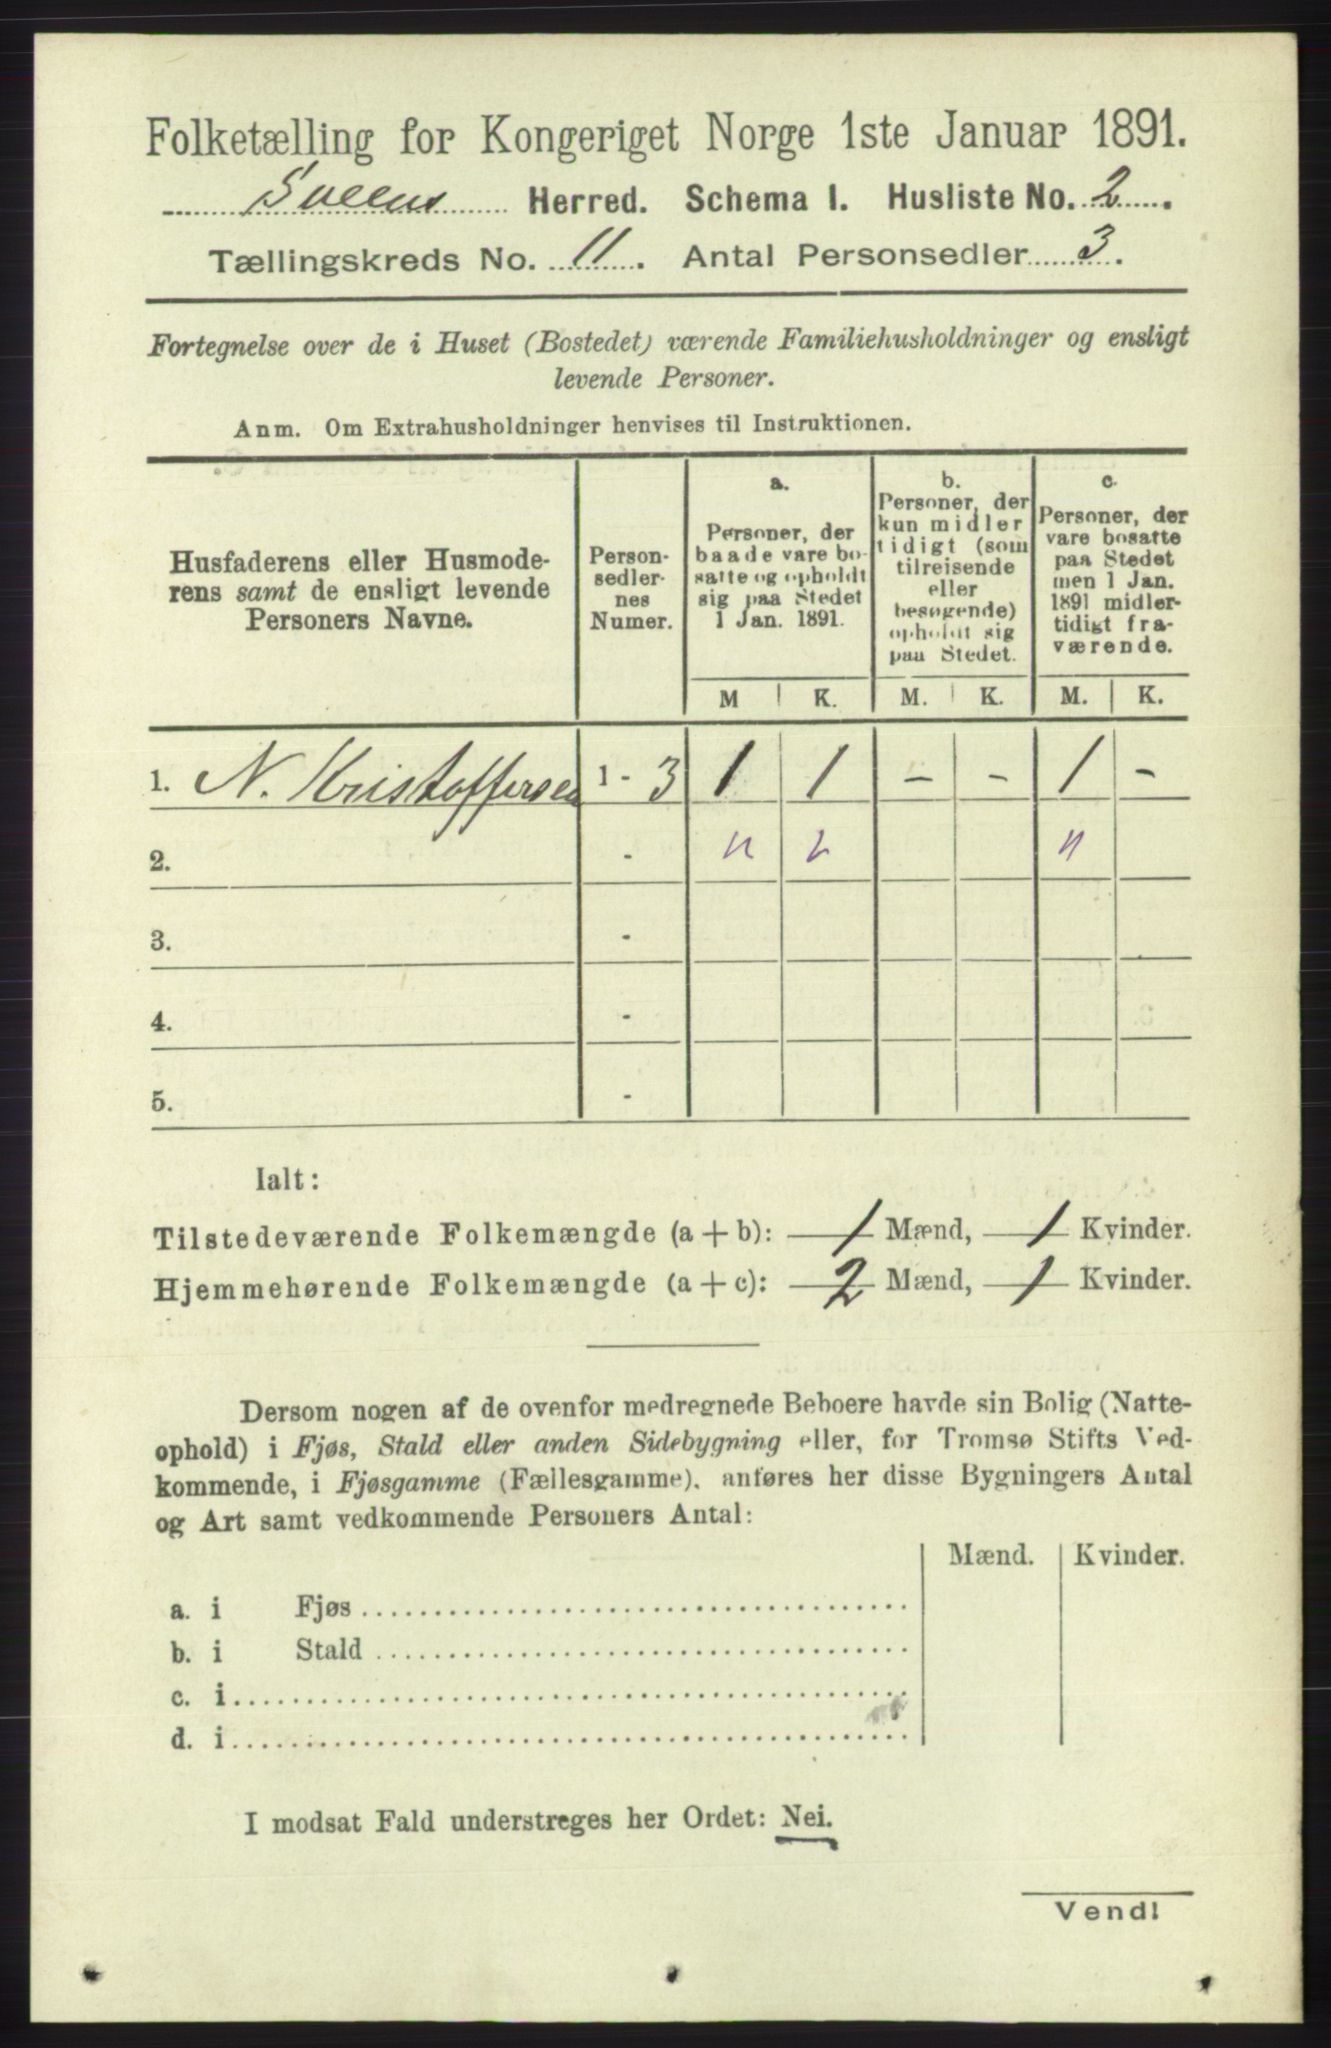 Folketælling for Kongeriget Norge 1ste Januar 1891.
Sveens Herred. Schema I. Husliste No. 2.
Tællingskreds No. 11. Antal Personsedler 3.
Fortegnelse over de i Huset (Bostedet) værende Familiehusholdninger og ensligt
levende Personer.
Anm. Om Extrahusholdninger henvises til Instruktionen.
Husfaderens eller Husmode-
rens samt de ensligt levende
Personers Navne.
Person-
sedler-
nes
Numer.
a.
Personer, der
baade vare bo-
satte og opholdt
sig paa Stedet
1 Jan. 1891.
b.
Personer, der
kun midler
tidigt (som
tilreisende
eller
besøgende)
opholdt sig
paa Stedet.
c.
Personer, der
vare bosatte
paa Stedet
men 1 Jan.
1891 midler-
tidigt fra-
værende.
M K. M. K. M. K.
1. N. Kristoffersen 1 - 3 1 1 - - 1 -
2. - n 2 n
3. -
4. -
5. -
Ialt:
Tilstedeværende Folkemængde (a + b): 1 Mænd, 1 Kvinder.
Hjemmehørende Folkemængde (a + c): 2 Mænd, 1 Kvinder.
Dersom nogen af de ovenfor medregnede Beboere havde sin Bolig (Natte-
ophold) i Fjøs, Stald eller anden Sidebygning eller, for Tromsø Stifts Ved-
kommende, i Fjøsgamme (Fællesgamme), anføres her disse Bygningers Antal
og Art samt vedkommende Personers Antal:
Mænd. Kvinder.
a. i Fjøs
b. i Stald
c. i
d. i
I modsat Fald understreges her Ordet: Nei.
Vend!